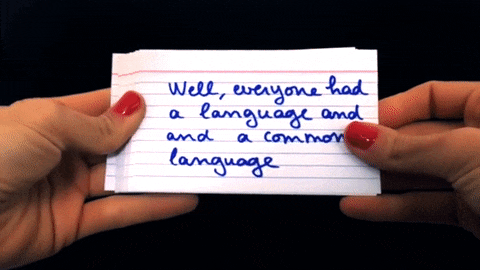 Well, everyone had
a language and
and a common
language